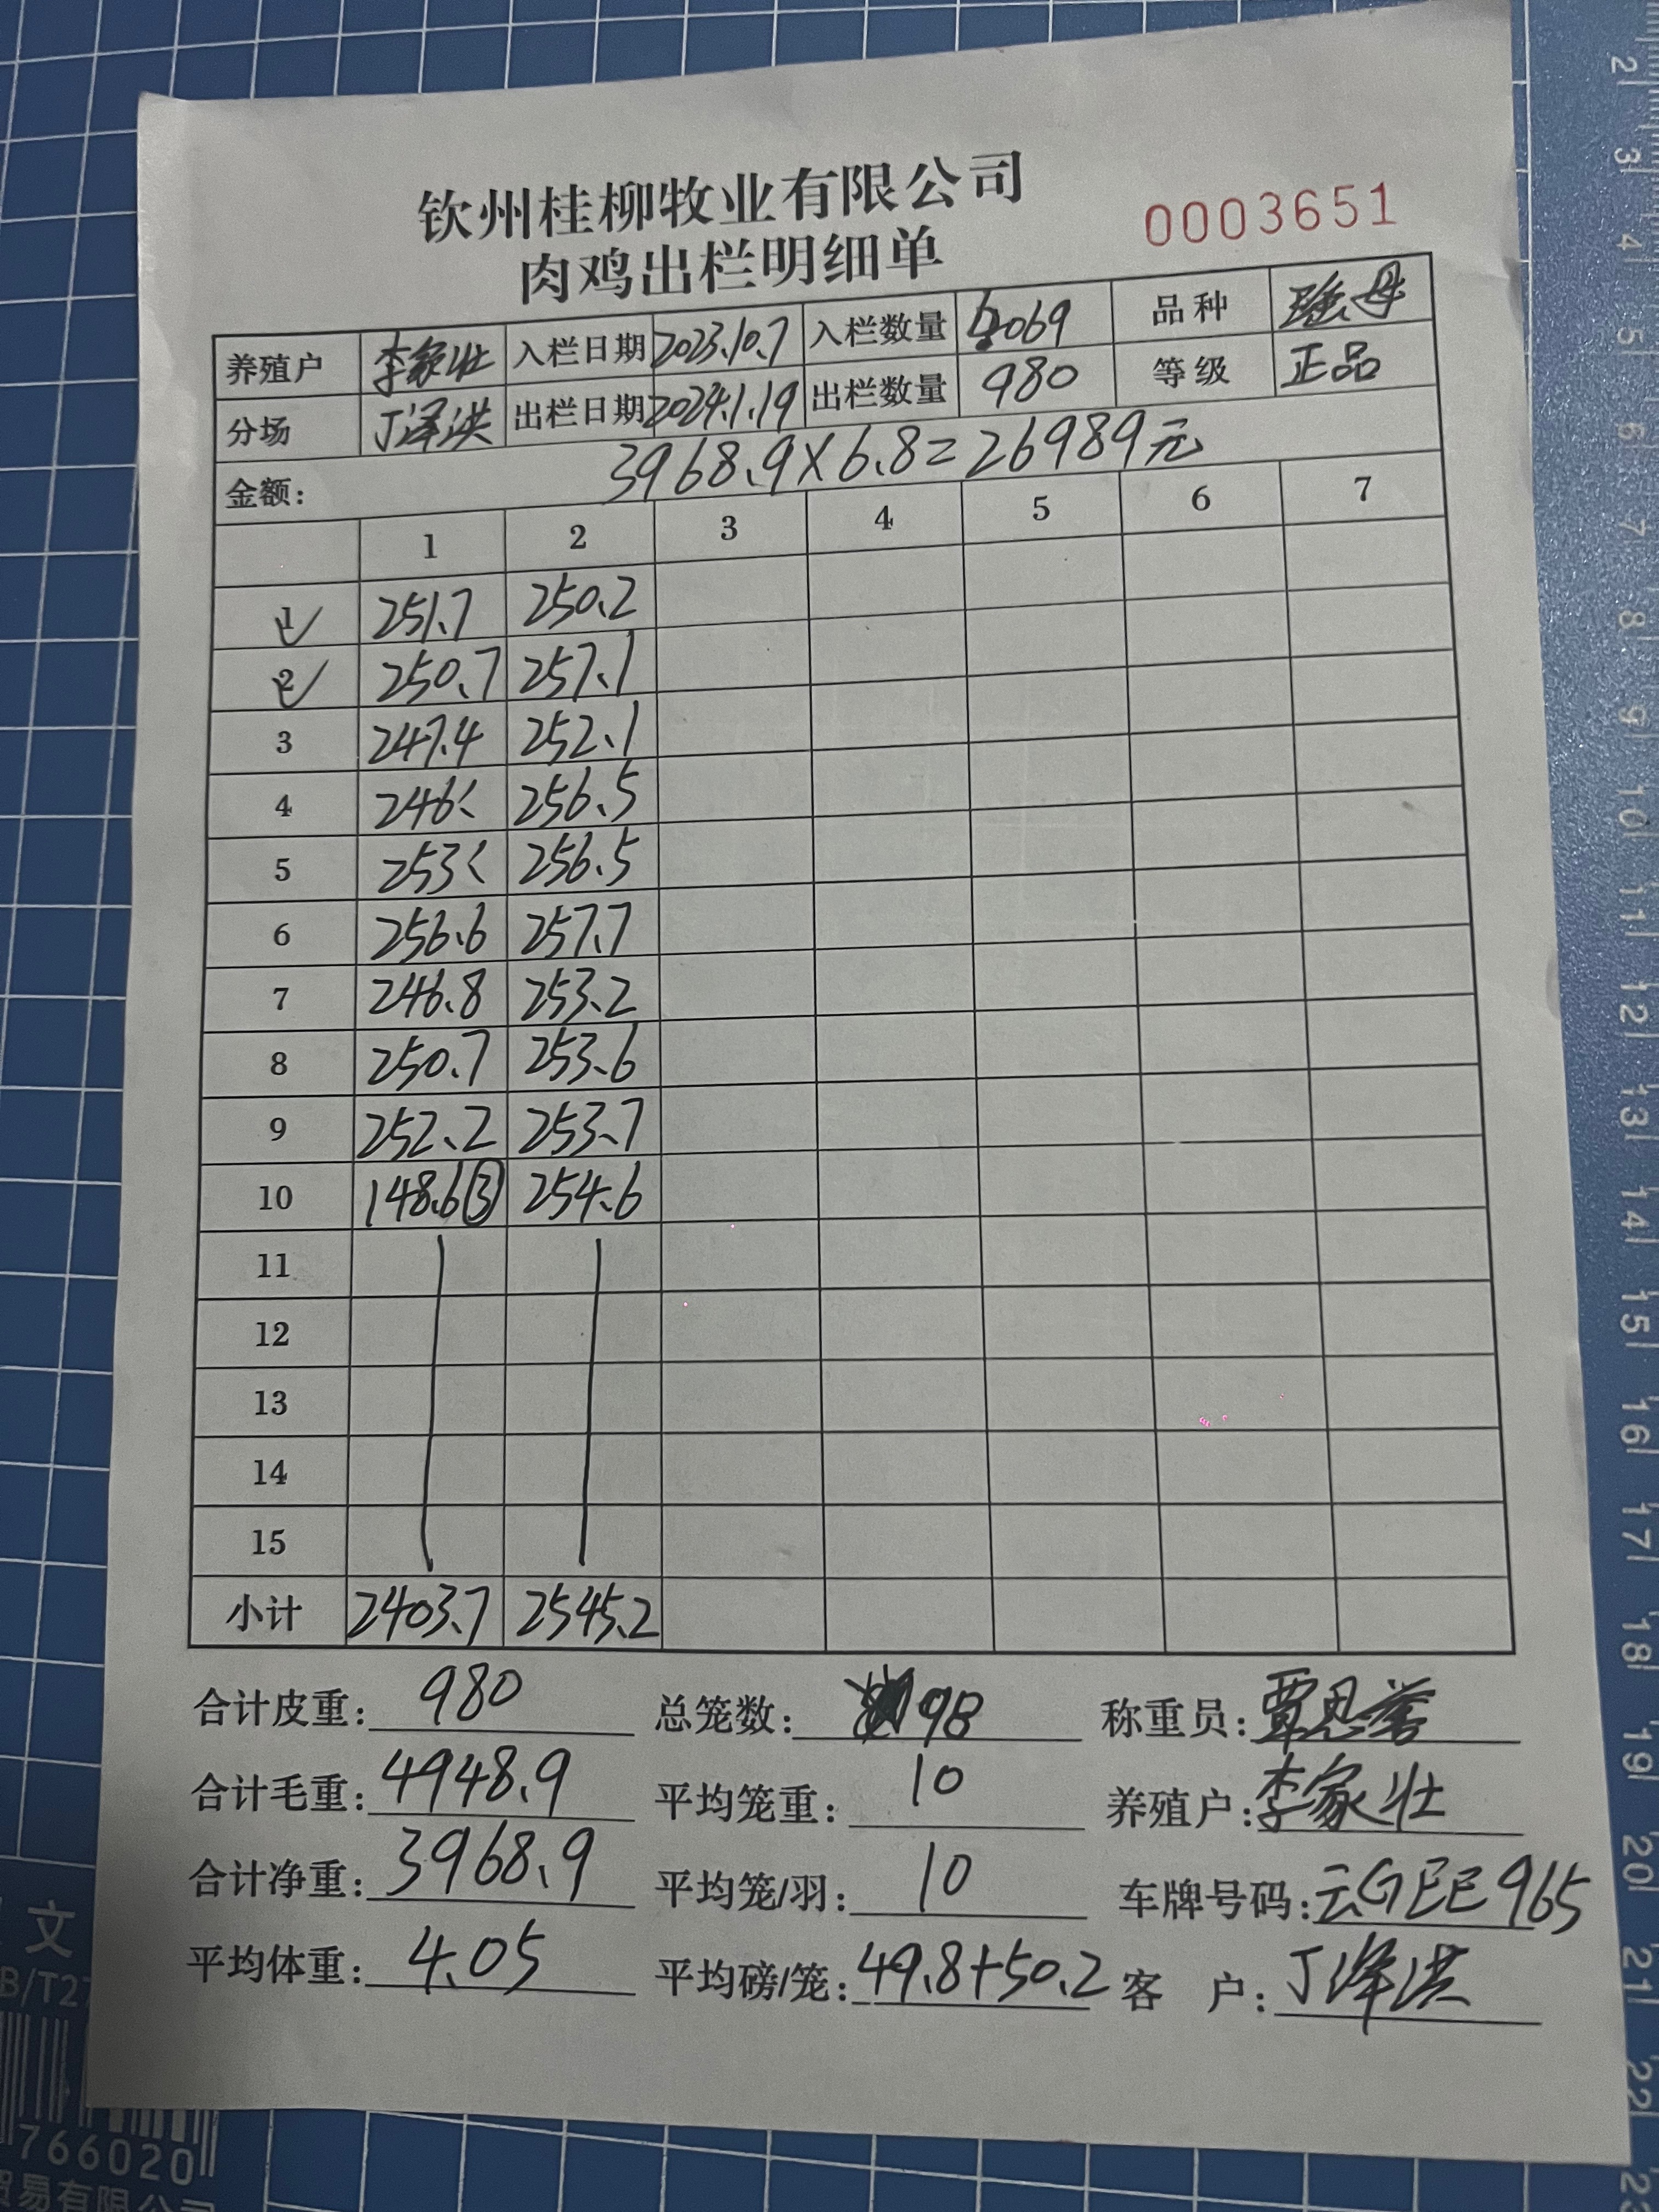 钦州桂柳牧业有限公司
0003651
肉鸡出栏明细单
养殖户 李家壮 入栏日期 2023.10.7 入栏数量 6069 品种
分场 丁泽洪 出栏日期 2024.1.19 出栏数量 980 等级 正品
金额: 3968.9×6.8=26989元
1 2 3 4 5 6 7
1 251.7 250.2
2 250.7 257.1
3 247.4 252.1
4 246< 256.5
5 253< 256.5
6 256.6 257.7
7 246.8 253.2
8 250.7 253.6
9 252.2 253.7
10 148.6③ 254.6
11
12
13
14
15
小计 2403.7 2545.2
合计皮重: 980 总笼数: 98 称重员: 覃恩誉
合计毛重: 4948.9 平均笼重: 10 养殖户: 李家壮
合计净重: 3968.9 平均笼/羽: 10 车牌号码: 云GEE965
平均体重: 4.05 平均磅/笼: 49.8+50.2 客 户: 丁泽洪
2
3
4
5
6
7
8
9
10
11
12
13
14
15
16
17
18
19
20
21
22
23
文
B/T2
766020
贸易有限公司